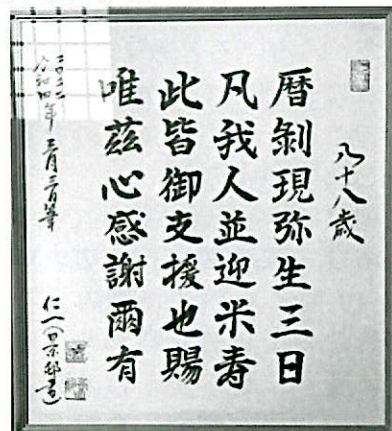 八十八歳
暦剝現弥生三日
凡我人並迎米寿
此皆御支援也賜
唯茲心感謝爾有
二〇二二
令和四年三月三日筆 仁一